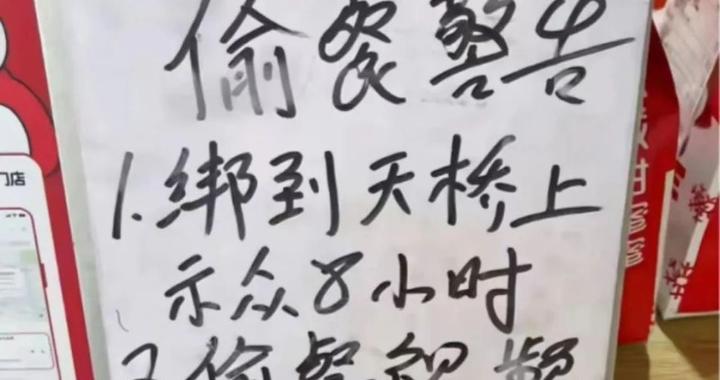 偷餐警告
1.绑到天桥上
示众8小时
2.偷餐视频
门店